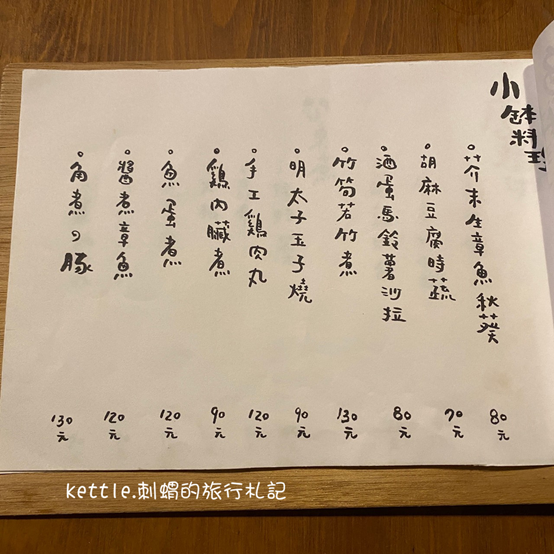 小缽料理
芥末生章魚秋葵
80元
胡麻豆腐時蔬
70元
酒蛋馬鈴薯沙拉
80元
竹筍若竹煮
130元
明太子玉子燒
90元
手工鷄肉丸
120元
鷄內臟煮
90元
魚蛋煮
120元
醬煮章魚
120元
角煮の豚
130元
kettle.刺蝟的旅行札記